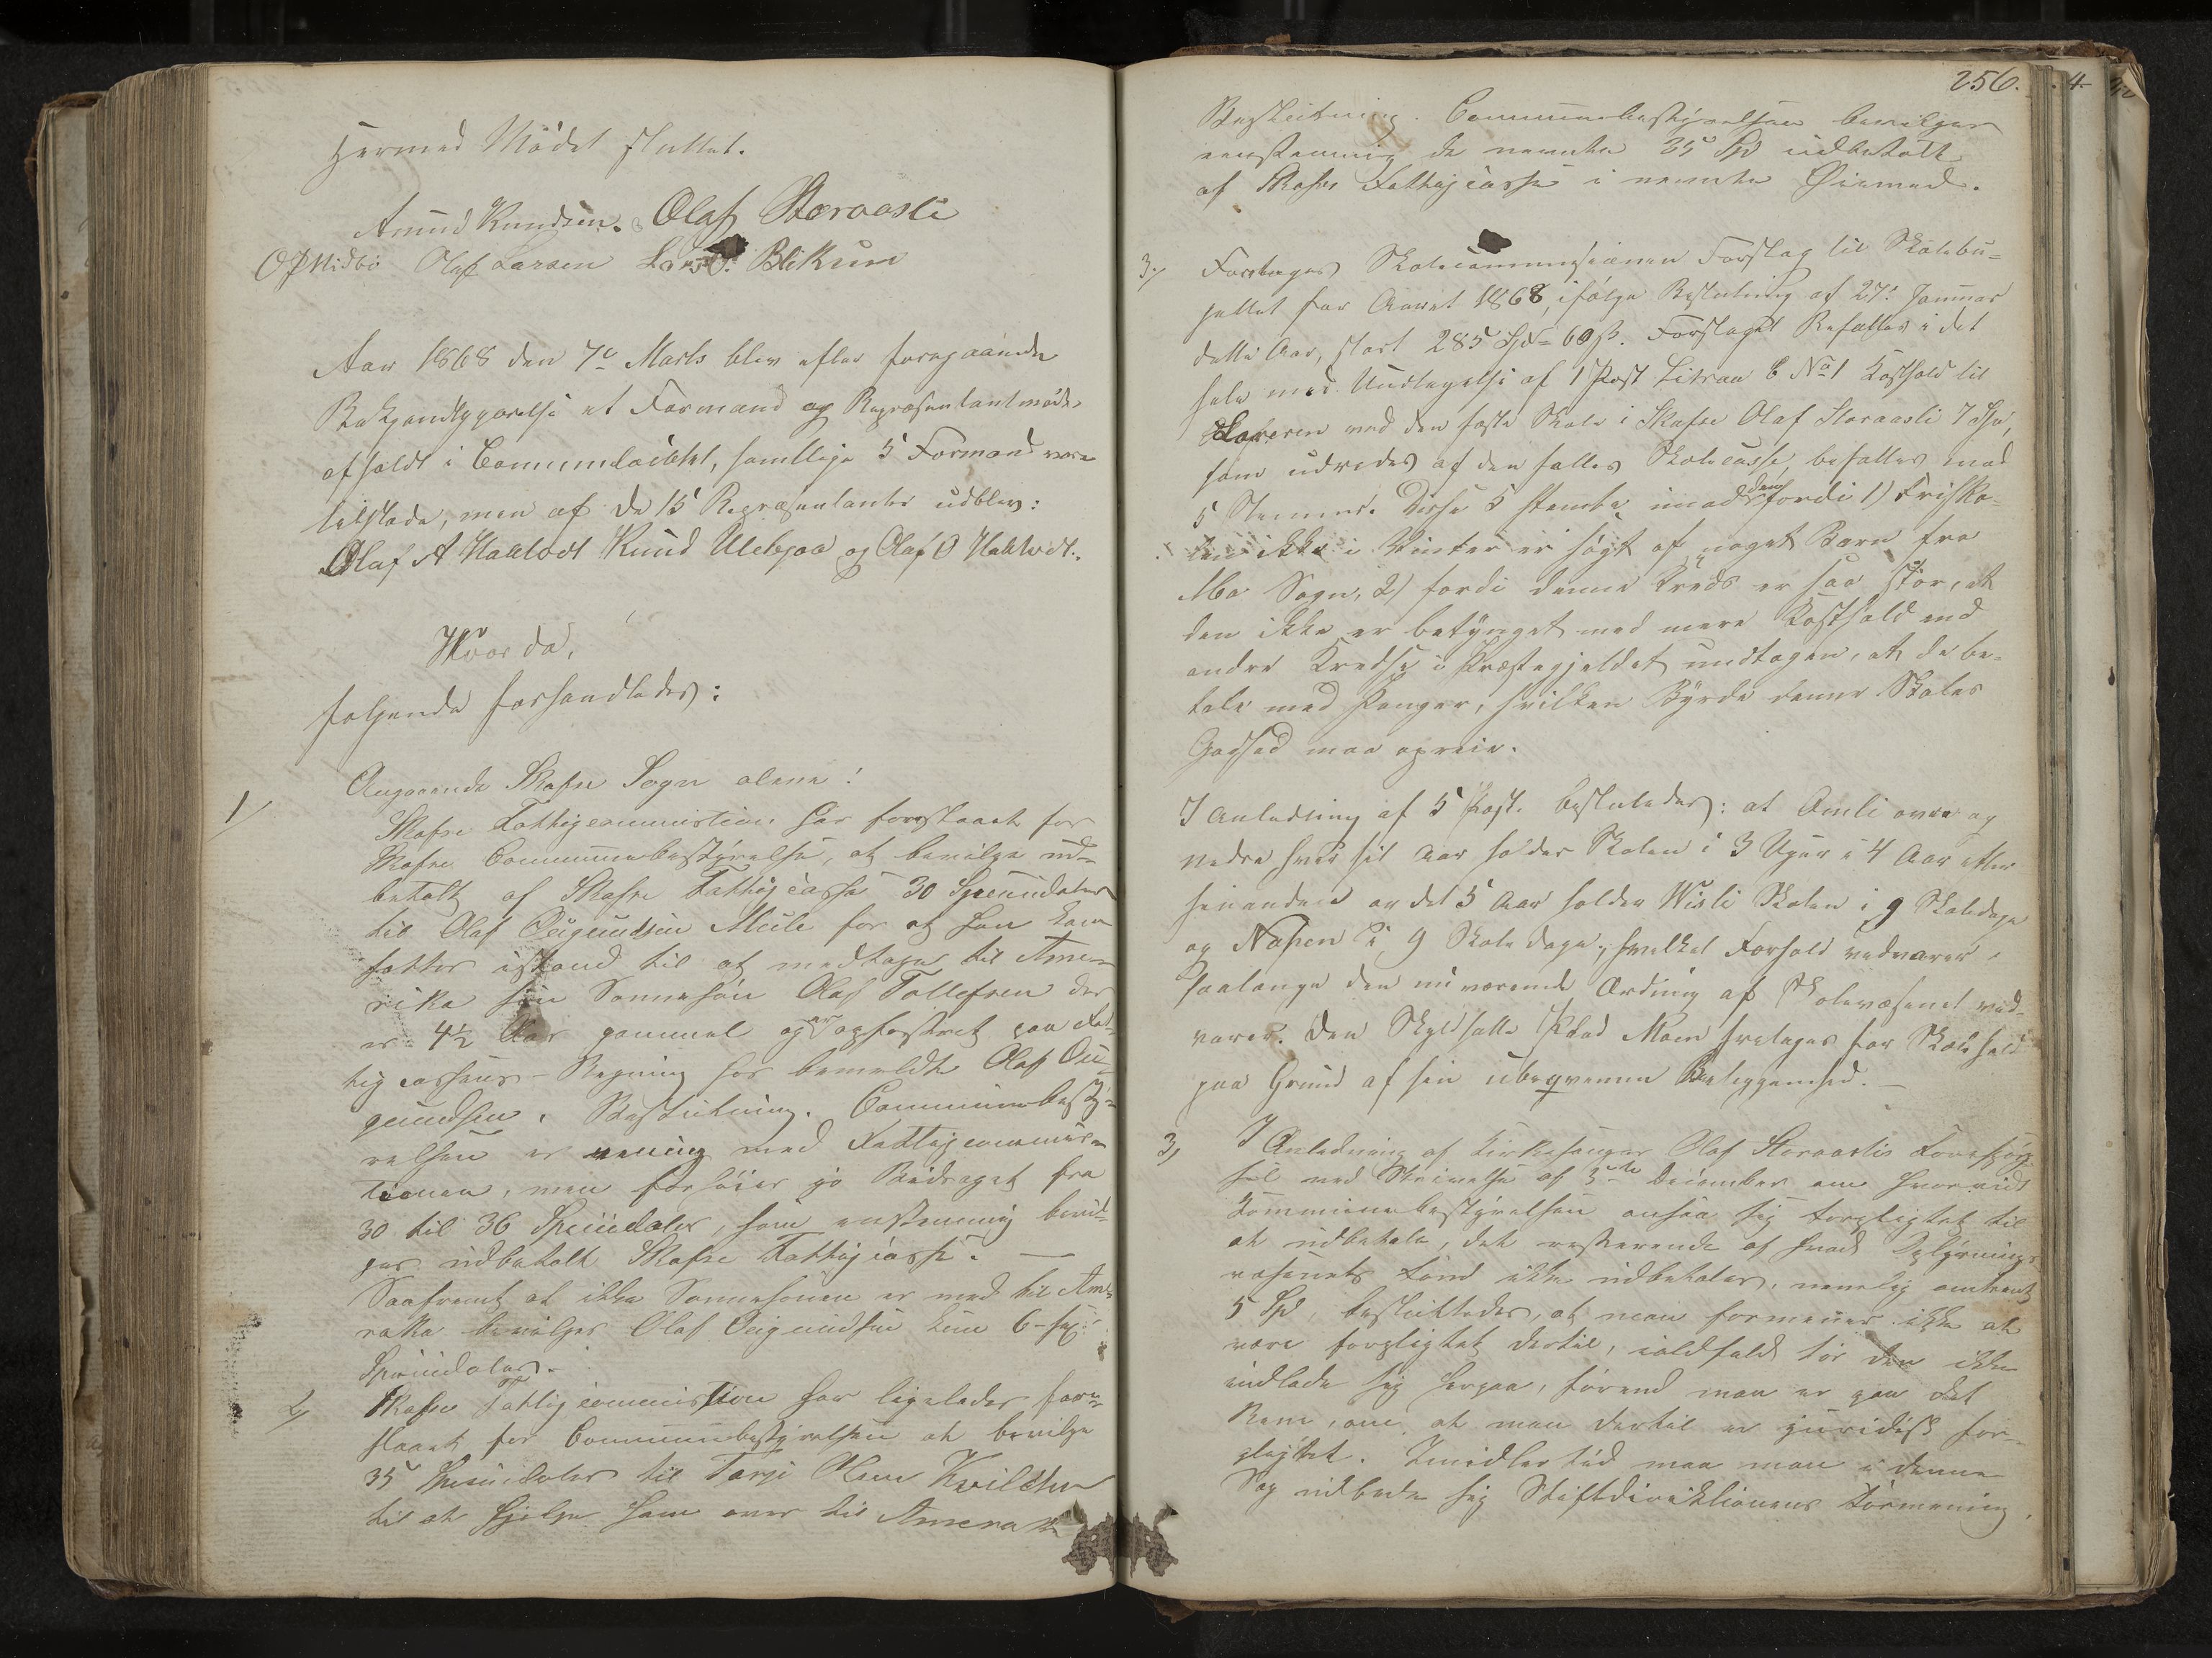 Hermed Mødet sluttet.
Amund Knudsen. Olaf Storaasli
O P Midbö Olaf Larsen Lars O. Bekun
Aar 1868 den 7de Marts blev efter foregaaende
Bekjendtgjørelse et Formand og Repræsentantmøde
afholdt i Communelocalet, samtlige 5 Formænd vare
tilstæde, men af de 15 Repræsentanter udblev:
Olaf A Haatvedt Knud Uleberaa og Olaf O Haatvedt.
Hvor da,
følgende forhandledes:
1/ Angaaende Skafse Sogn alene!
Skafse Fattigcommission har foreslaaet for
Skafse Communebestyrelse, at bevilge ud-
betalt af Skafse Fattigcasse 30 Speciedaler
til Olaf Ougundsen Mule for at han kan
sættes istand til at medtage til Ame-
rika sin Sønnesøn Olaf Tollefsen der
er 4½ Aar gammel og er opfostret paa Fat-
tigcassens Regning hos bemeldte Olaf Ou-
gundsen. Beslutning. Communebesty-
relsen er enig med Fattigcommis-
sionen, men forhøier jo Bidraget fra
30 til 36 Speciedaler, som enstemmig bevil-
ges udbetalt Skafse Fattigcasse. —
Saafremt at ikke Sønnesønen er med til Ame-
rika bevilges Olaf Ougundsen kun 6-sex
Speciedaler.
2/ Skafse Fattigcommission har ligeledes fore-
slaaet for Communebestyrelsen at bevilge
35 Speciedaler til Tarje Olsen Kvilekve
til at hjelpe ham over til Amerika
256.
Beslutning. Communebestyrelsen bevilger
eenstemmig de nævnte 35 Spd udbetalt
af Skafse Fattigcasse i nævnte Øiemed.
3./ Foretoges Skolecommissionen Forslag til Skolebu-
jettet for Aaret 1868, ifølge Beslutning af 27de Januar
dette Aar, stort 285 Spd 60 ß. Forslaget Besattes i det
hele med Undtagelse af 1 Post Litraa C No 1 Kosthold til
Læreren ved den faste Skole i Skafse Olaf Storaasli 7 Spd,
som udredes af den fælles Skolecasse, besattes med
5 Stemmer. Disse 5 stemte imod den fordi 1) Frisko-
len ikke i Vinter er søgt af noget Barn fra
Mo Sogn, 2) fordi denne Kreds er saa stor, at
den ikke er betynget med mere Kosthold end
andre Kredse i Præstegjeldet undtagen, at de be-
tale med Penger, hvilken Byrde denne Skoles
Godhed maa opveie.
I Anledning af 5 Post. besluttedes: at Aamli øvre og
nedre hver sit Aar holder Skolen i 3 Uger i 4 Aar efter
hinanden og det 5 Aar holder Wisli Skolen i 9 Skoledage
og Napen i 9 Skole dage, hvilket Forhold vedvarer
saalænge den nu værende Ordning af Skolevæsenet ved-
varer. Den Skyldsatte Plads Moen fretages for Skolehold
paa Grund af sin ubeqvemme Beliggenhed. —
3, I Anledning af Kirkesanger Olaf Storaaslis Forespørg-
sel ved Skrivelse af 3die December om hvorvidt
Kommunebestyrelsen ansaa sig forpligtet til
at udbetale, det resterende af hvad Oplysnings-
væsenets Fond ikke udbetaler, nemlig omtrent
5 Spd, besluttedes, at man formener ikke at
være forpligtet dertil, ialdfald tør den ikke
indlade sig herpaa, førend man er paa det
Rene, om at man dertil er juridisk for-
pligtet. Imidlertid maa man i denne
Sag udbede sig Stiftdirektionens Formening.